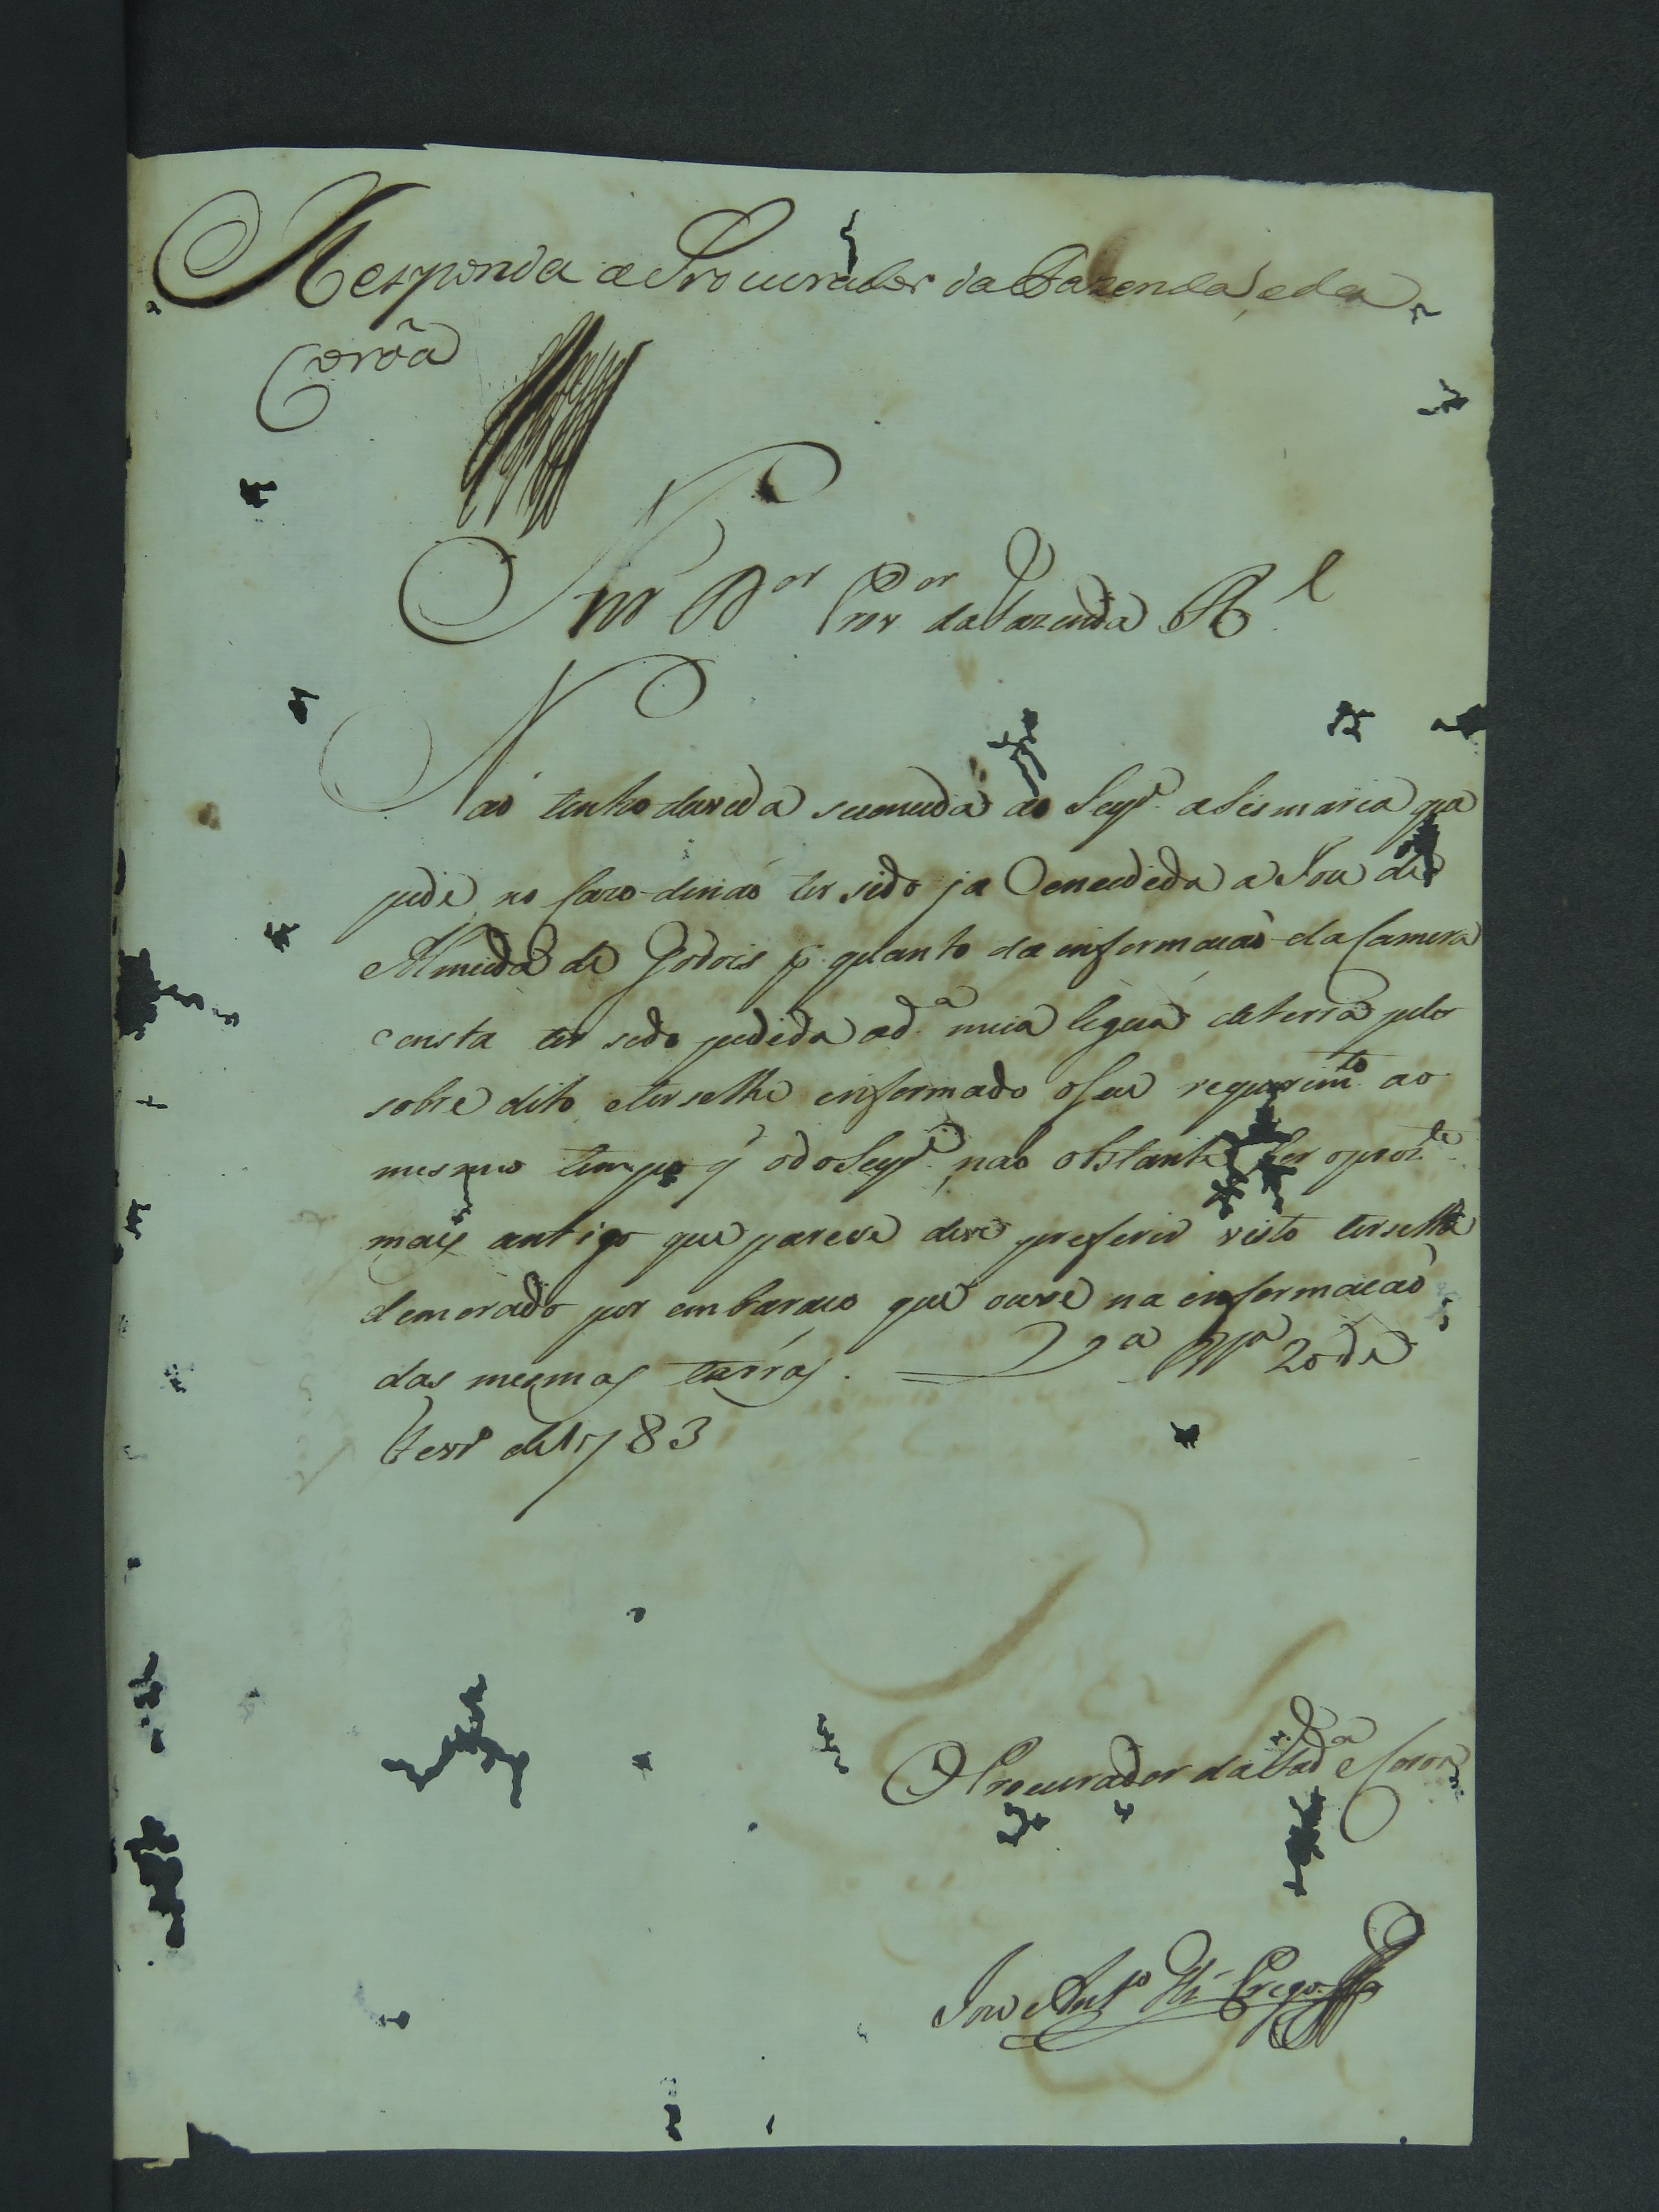 Responda o Procurador da Fazenda, e da
Corôa
Snr Dor Pror da Fazenda Rl
Não tenho duveda seconceda ao Supe aSesmaria que
pede no cazo denão ter sido ja Concedida a Joze de
Almeida de Godois p quanto da informacaõ da Camera
consta ter sedo pedida ad.a meia legua deterra pelo
sobre dito eterselhe informado oseu requerimto ao
mesmo tempo q̃ odo Supe naõ obstante ser opro te
mais antigo que parece deve preferir visto terselhe
demorado por embaraco que ouve na informacaõ
das mesmas terras. 20 de
Fevro de 1783
O Procurador da Fazda e Coroa
Joze Anto Prego